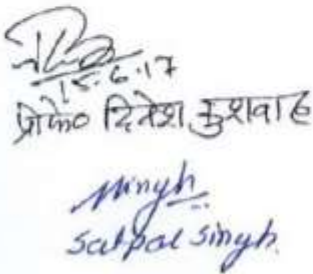 15.6.17
प्रोफे० दिनेश कुशवाह
Singh
Satpal Singh.